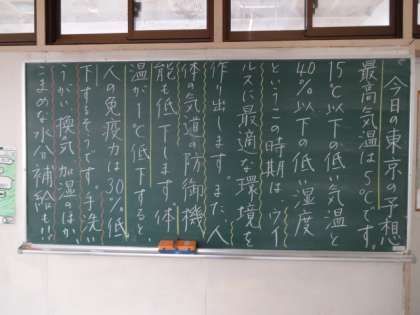 今日の東京の予想
最高気温は5℃です。
15℃以下の低い気温と
40%以下の低い湿度
というこの時期は、ウイ
ルスに最適な環境を
作り出します。また、人
体の気道の防御機
能も低下します。体
温が1℃低下すると、
人の免疫力は30%低
下するそうです。手洗い
うがい換気加温のほか、
こまめな水分補給も!!